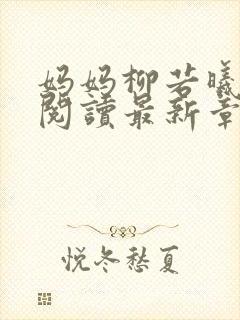 妈妈柳若曦
閱讀最新章
悦冬愁夏